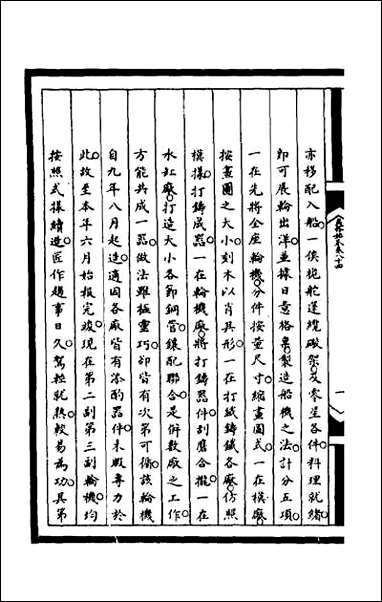 亦移配入船一俟桅舵蓬纜礮架及零星各件料理就緒
即可展輪出洋並據日意格稟製造船機之法計分五項
一在先將全座輪機分件按量尺寸縮畫圖式一在模廠
按畫圖之大小刻木以肖其形一在打鐵鑄鐵各廠仿照
模樣打鑄成器一在輪機廠將打鑄器件刮磨合攏一在
水缸廠打造大小各節銅管鑲配聯合是併數廠之工作
方能共成一器做法雖極靈巧卻皆有次第可循該輪機
自九年八月起造適因各廠皆有添酌器件未暇專力於
此故至本年六月始報完竣現在第二副第三副輪機均
按照式樣續造匠作趨事日久駕輕就熟較易為功其第